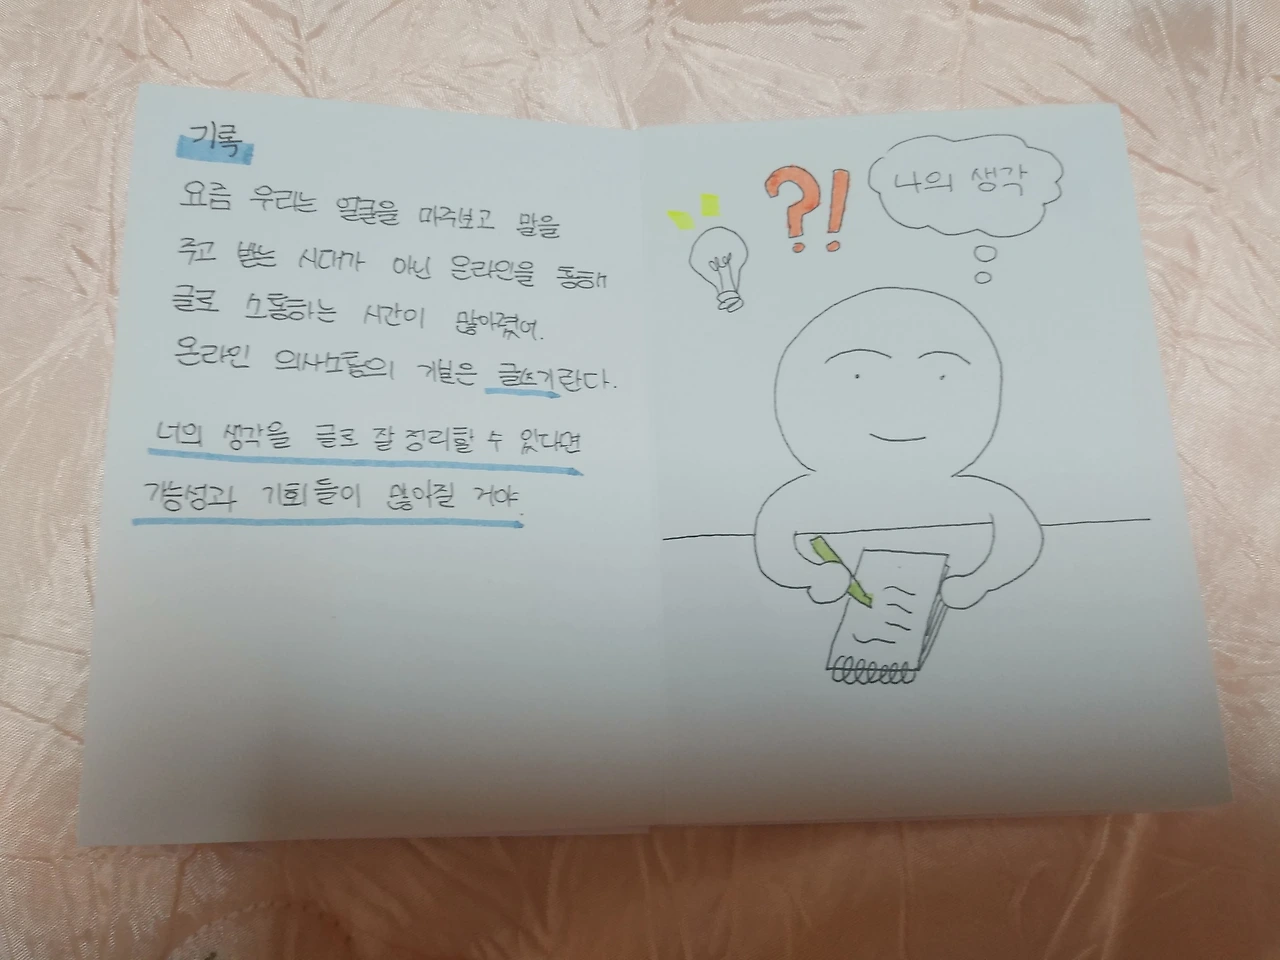 기록
요즘 우리는 얼굴을 마주보고 말을
주고 받는 시대가 아닌 온라인을 통해
글로 소통하는 시간이 많아졌어.
온라인 의사소통의 기본은 글쓰기란다.
너의 생각을 글로 잘 정리할 수 있다면
가능성과 기회들이 많아질 거야.
?!
나의 생각